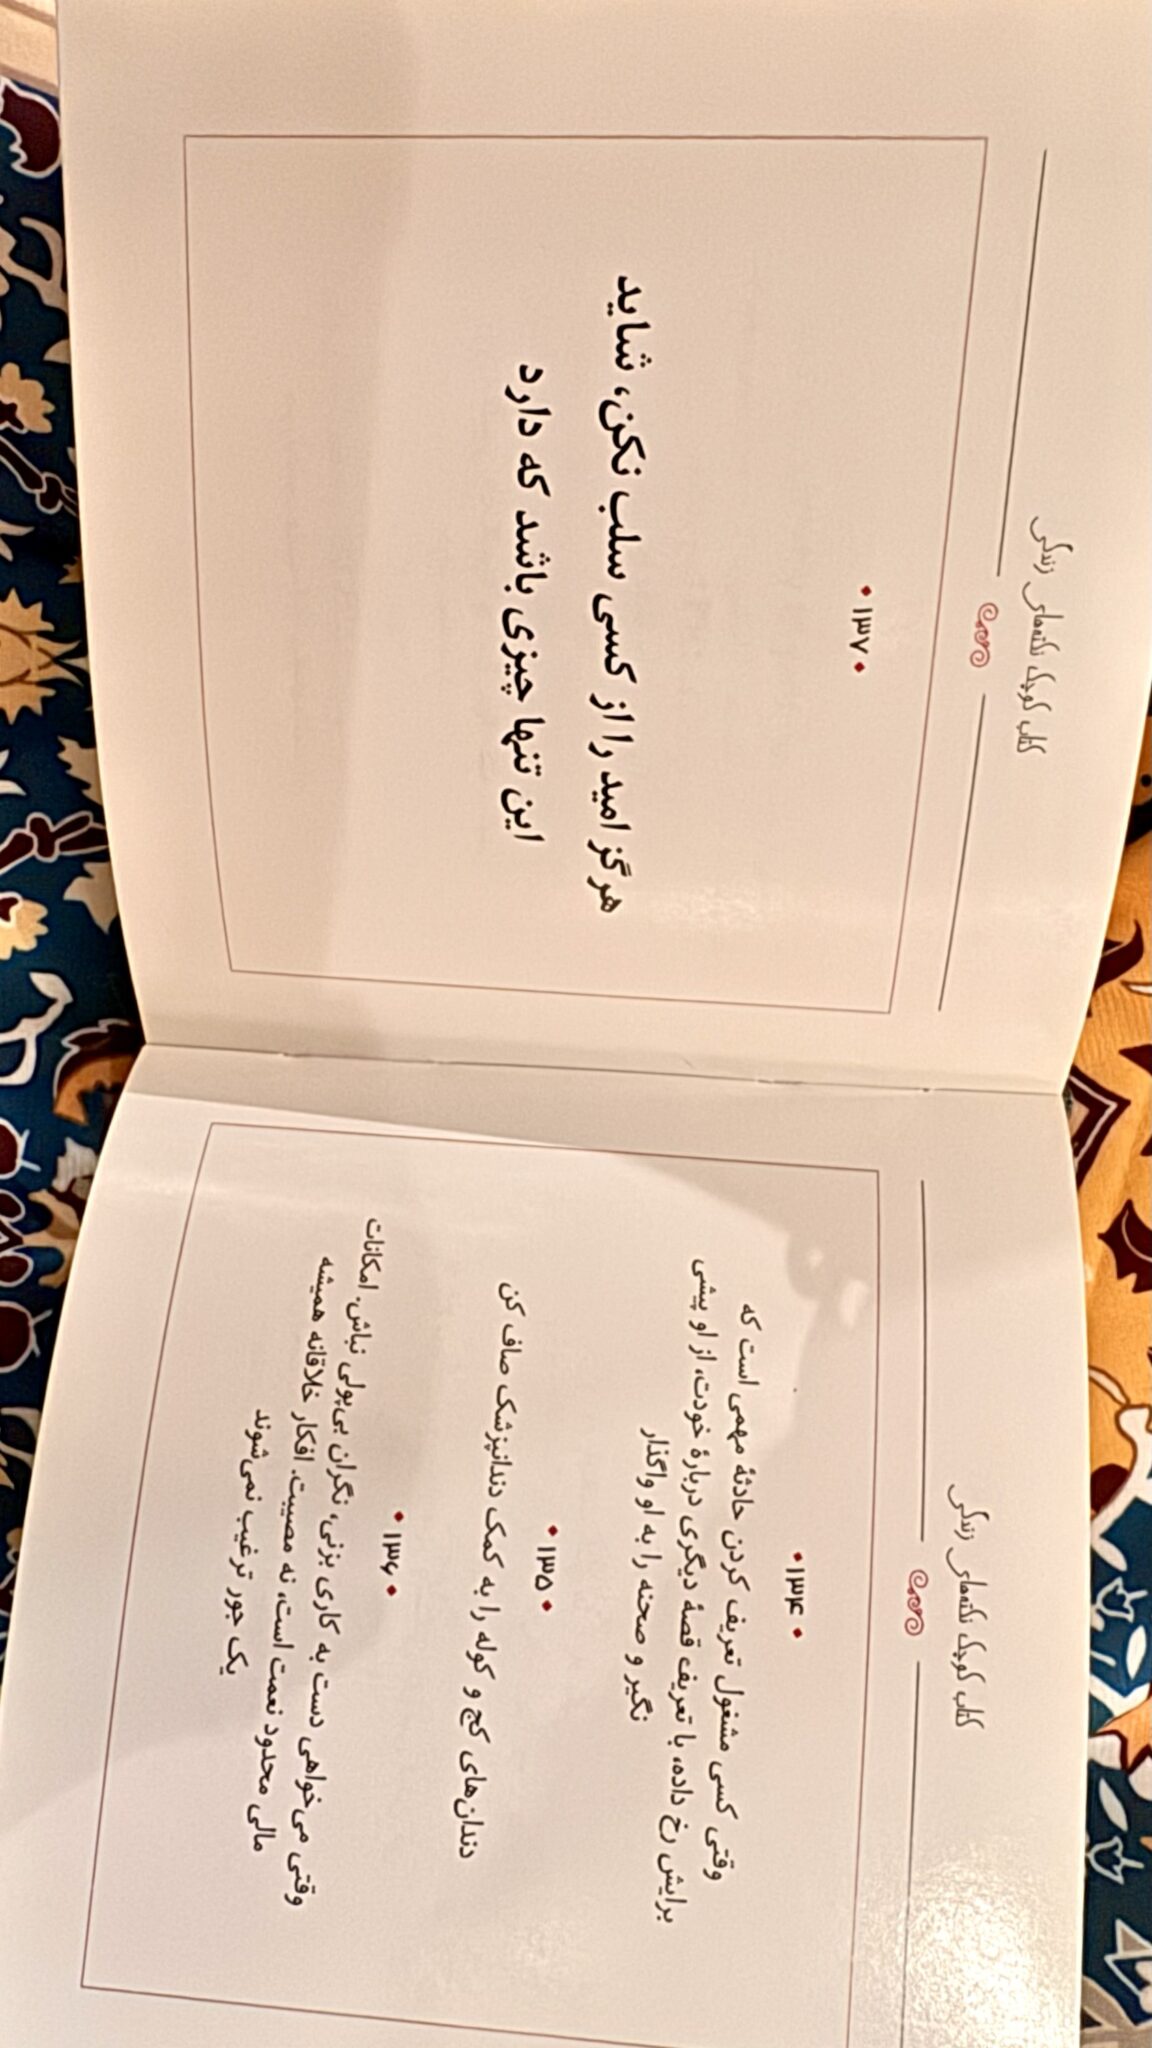 کتاب کوچک نکته‌های زندگی
•۱۳۴•
وقتی کسی مشغول تعریف کردن حادثهٔ مهمی است که
برایش رخ داده، با تعریف قصهٔ دیگری دربارهٔ خودت، از او پیشی
نگیر و صحنه را به او واگذار
•۱۳۵•
دندان‌های کج و کوله را به کمک دندانپزشک صاف کن
•۱۳۶•
وقتی می‌خواهی دست به کاری بزنی، نگران بی‌پولی نباش. امکانات
مالی محدود نعمت است، نه مصیبت. افکار خلاقانه همیشه
یک جور ترغیب نمی‌شوند
کتاب کوچک نکته‌های زندگی
•۱۳۷•
هرگز امید را از کسی سلب نکن، شاید
این تنها چیزی باشد که دارد